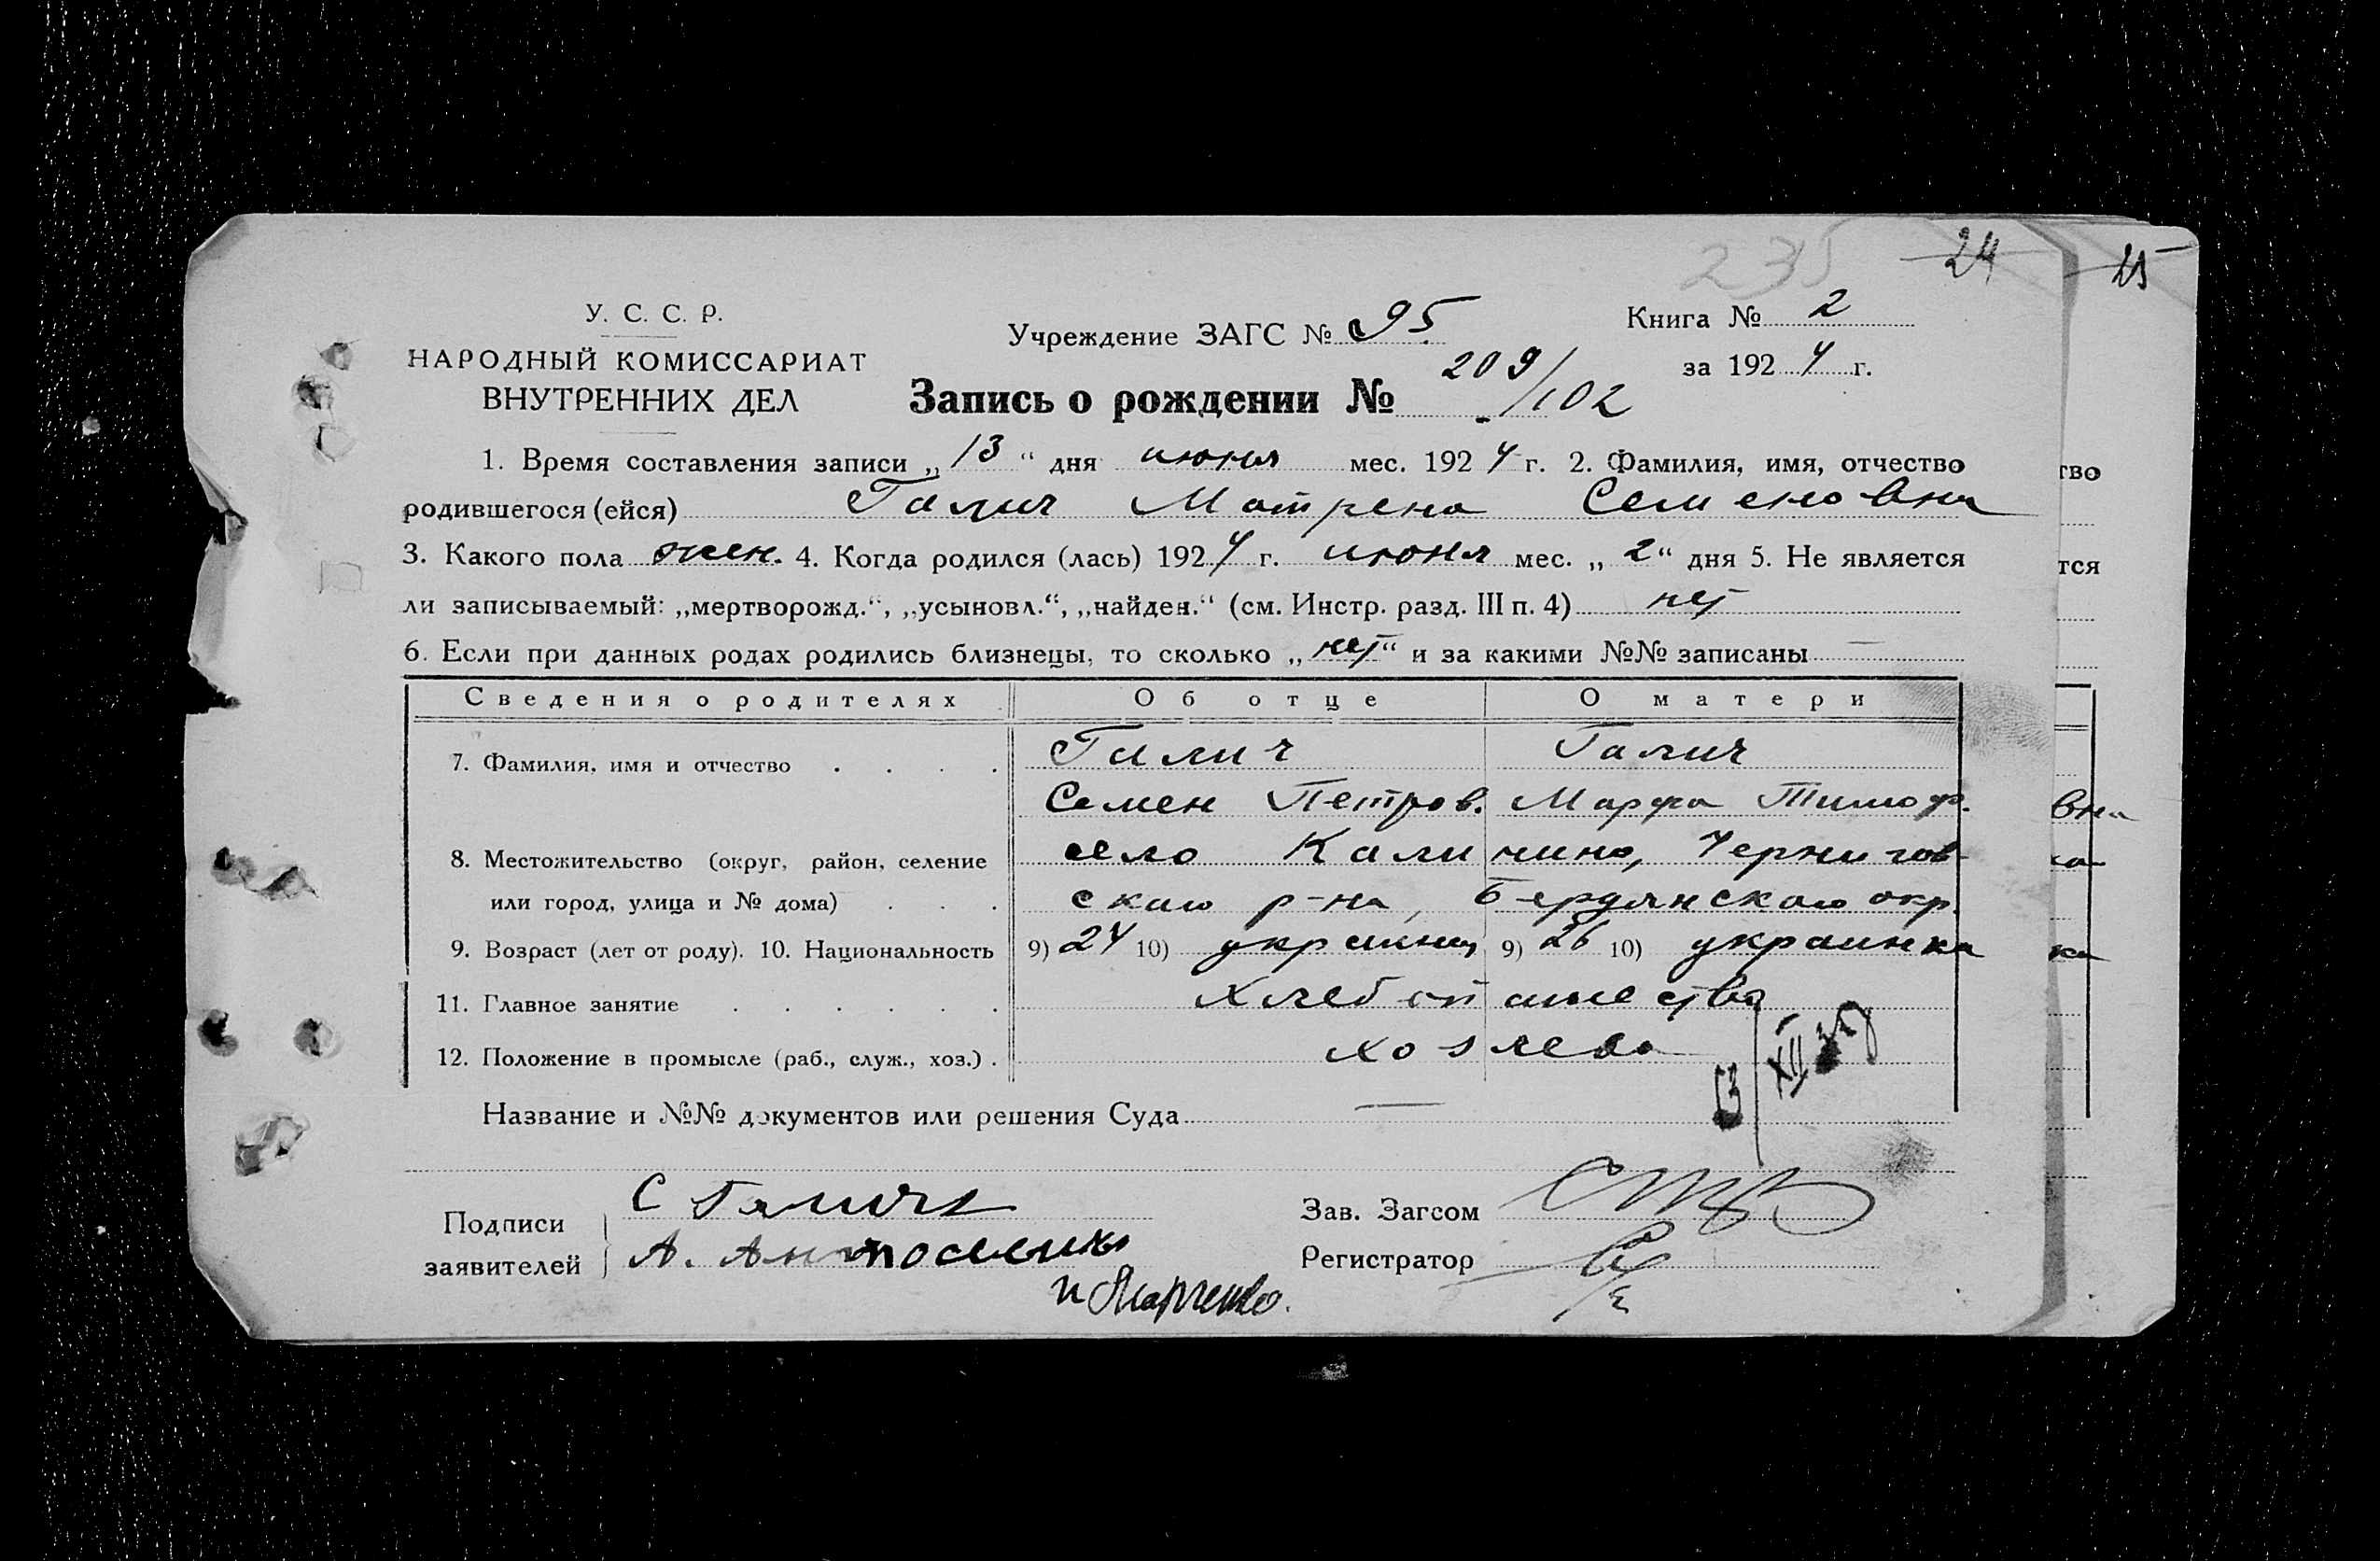 235 24 25
У. С. С. Р.
НАРОДНЫЙ КОМИССАРИАТ
ВНУТРЕННИХ ДЕЛ
Учреждение ЗАГС № 95
Книга № 2
за 1924 г.
Запись о рождении № 209/102
1. Время составления записи „13“ дня июня мес. 1924 г. 2. Фамилия, имя, отчество
родившегося (ейся) Галич Матрена Семеновна
3. Какого пола жен. 4. Когда родился (лась) 1924 г. июня мес. „2“ дня 5. Не является
ли записываемый: „мертворожд.“, „усыновл.“, „найден.“ (см. Инстр. разд. III п. 4) нет
6. Если при данных родах родились близнецы, то сколько „нет“ и за какими №№ записаны —
Сведения о родителях Об отце О матери
7. Фамилия, имя и отчество . . . . Галич Галич
Семен Петров. Марфа Тимоф.
8. Местожительство (округ, район, селение село Калинино, Чернигов-
или город, улица и № дома) . . . ского р-на, Бердянского окр.
9. Возраст (лет от роду). 10. Национальность 9) 24 10) украинец 9) 26 10) украинка
11. Главное занятие . . . . . . Хлебопашество
12. Положение в промысле (раб., служ., хоз.) . хозяева
13/XII
Название и №№ документов или решения Суда —
Подписи
заявителей
С Галич
А.
и Марченко.
Зав. Загсом
Регистратор
тво
тся
вна
ка
ка